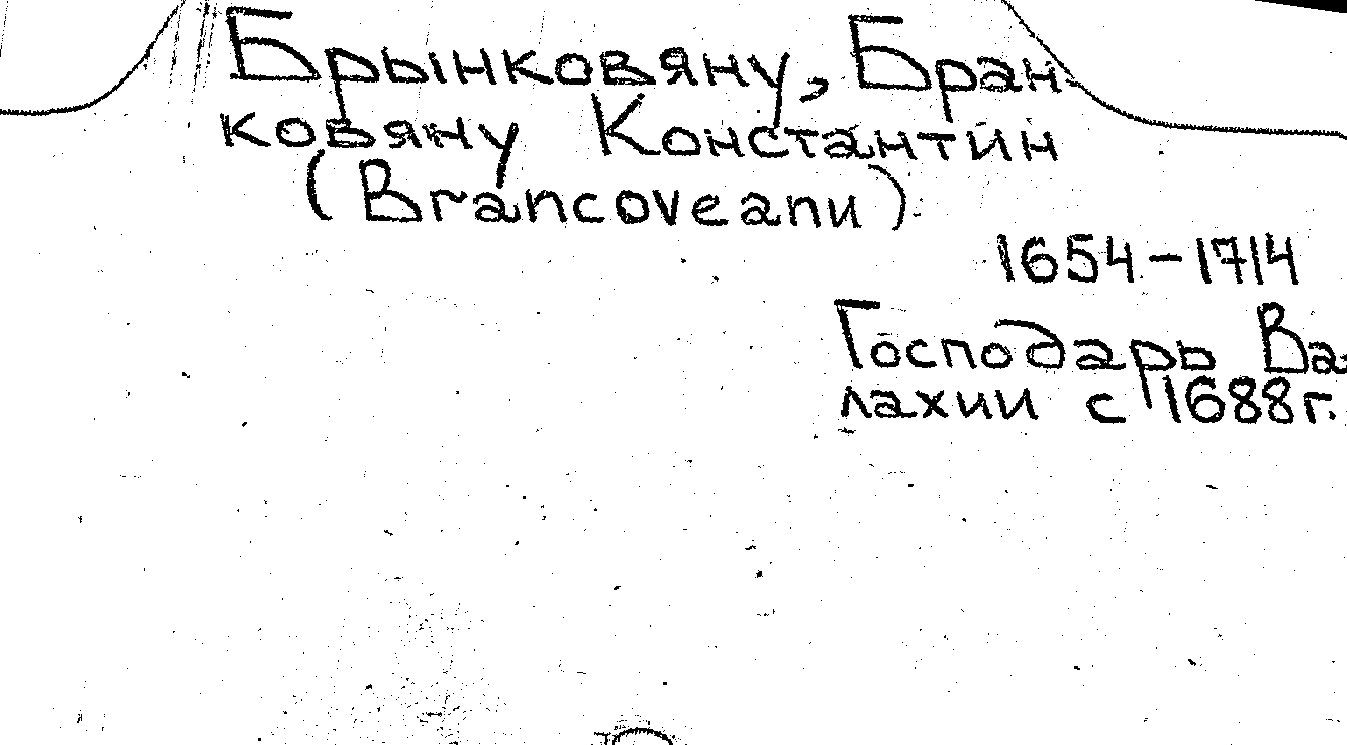 Брынковяну, Бран-
ковяну Константин
(Brancoveanu)
1654-1714
Господарь Ва-
лахии с 1688г.